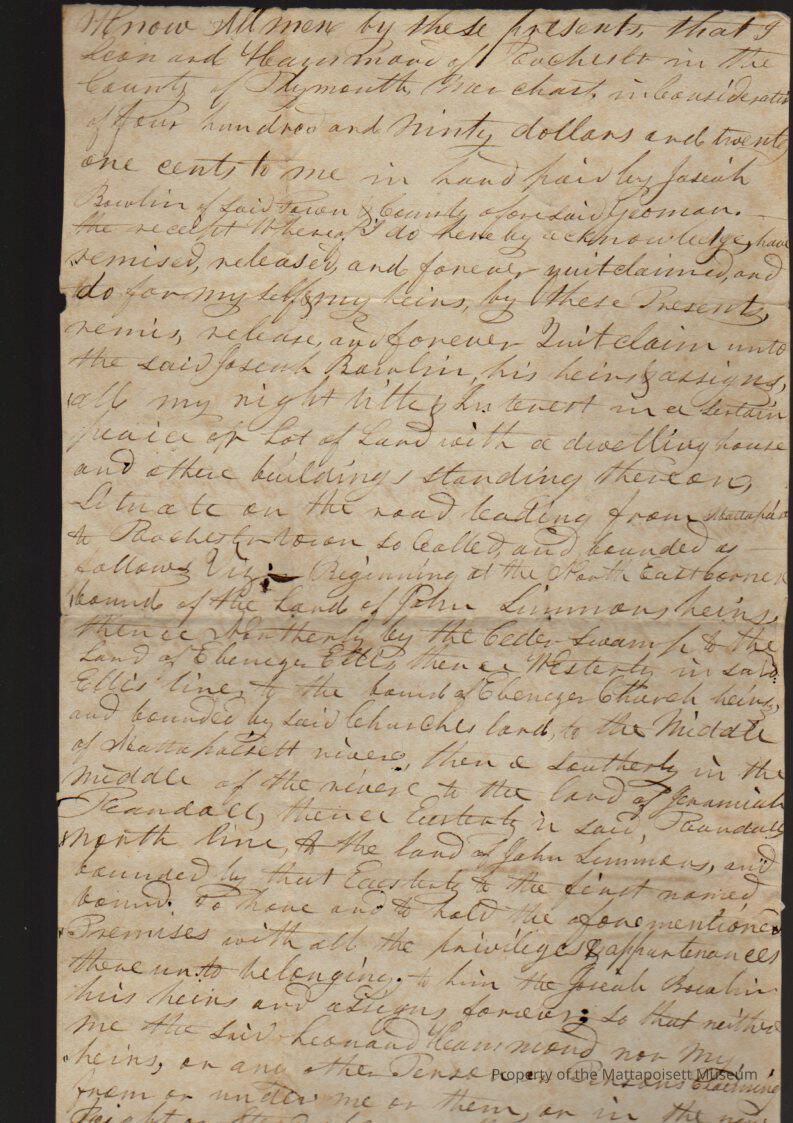 Know All men by these presents, that I
Leonard Hammond of Rochester in the
County of Plymouth, Merchant, in Consideration
of four hundred and Ninty dollars and twenty
one cents to me in hand paid by Josiah
Bowlin of said town & County aforesaid Yeoman.
the receipt Whereof I do hereby acknowledge, have
remised, released, and forever quitclaimed, and
do for my self & my heirs, by these Presents,
remis, release, and forever Quitclaim unto
the said Josiah Bowlin, his heirs & assigns,
all my right title & Interest in a Sertain
peaice or Lot of Land with a dwelling house
and othere buildings standing thereon,
Situate on the road leading from
to Rochester town so Called, and bounded as
follows Viz; Beginning at the North East Corner
bound of the Land of John Simmons heirs,
thence Northerly by the Ceder Swamp to the
Land of Ebenezer Ellis, thence Westerly in said
Ellis' line, to the bound of Ebenezer Church heirs,
and bounded by said Churches land, to the Middle
of Mattapoisett rivere, thence Southerly in the
middle of the rivere to the land of Jeremiah
Randall, thence Easterly in said Randalls
North line, to the land of John Simmons, and
bounded by that Easterly to the first named
bound. To have and to hold the aforementioned
Premises with all the privileges & appurtenances
there unto belonging to him the Josiah Bowlin
his heirs and assigns forever; so that neither
me the said Leonard Hammond nor my
heirs, or any other Person or Persons Claiming
from or under me or them, or in the
Property of the Mattapoisett Museum